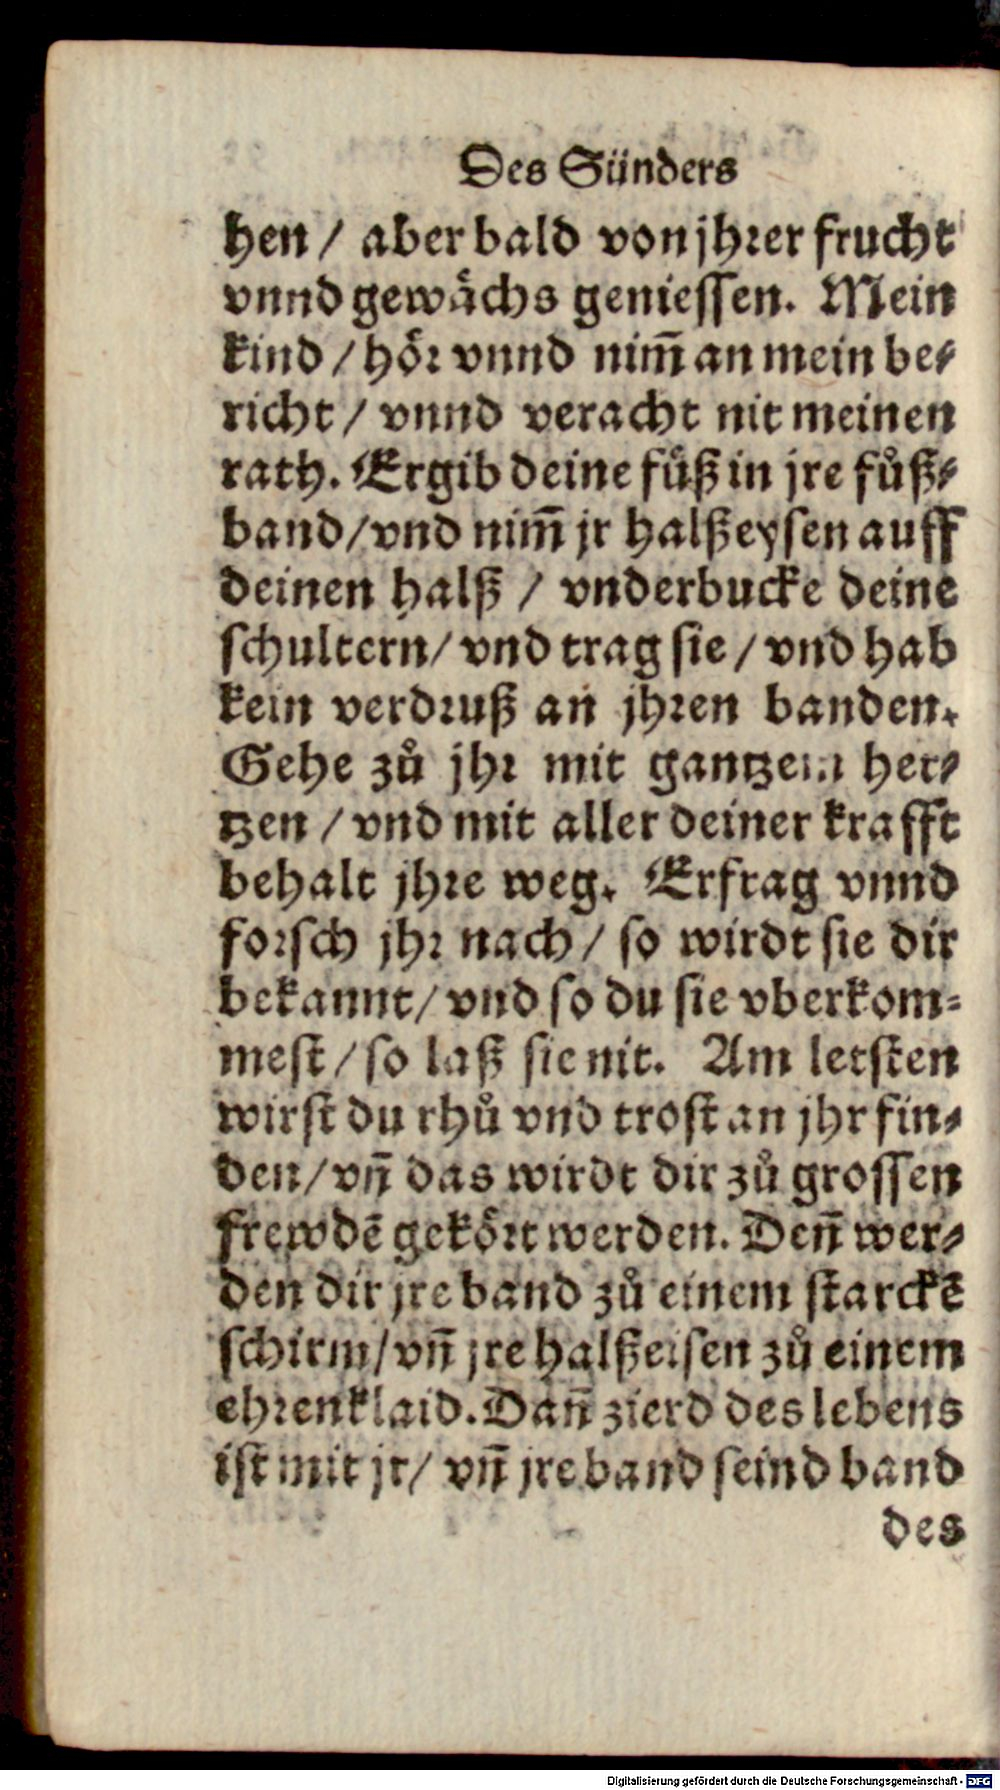 Des Sünders
hen / aber bald von jhrer frucht
vnnd gewaͤchs geniessen. Mein
kind / hoͤr vnnd nim̄ an mein be⸗
richt / vnnd veracht nit meinen
rath. Ergib deine fuͤß in jre fuͦß⸗
band / vnd nim̄ jr halßeysen auff
deinen halß / vnderbucke deine
schultern / vnd trag sie / vnd hab
kein verdruß an jhren banden.
Gehe zuͦ jhr mit gantzem her⸗
tzen / vnd mit aller deiner krafft
behalt jhre weg. Erfrag vnnd
forsch jhr nach / so wirdt sie dir
bekannt / vnd so du sie vberkom⸗
mest / so laß sie nit. Am letsten
wirst du rhuͦ vnd trost an jhr fin⸗
den / vn̄ das wirdt dir zuͦ grossen
frewdē gekoͤrt werden. Den̄ wer⸗
den dir jre band zuͦ einem starckē
schirm / vn̄ jre halßeisen zuͦ einem
ehrenklaid. Dan̄ zierd des lebens
ist mit jr / vn̄ jre band seind band
des
Digitalisierung gefördert durch die Deutsche Forschungsgemeinschaft - DFG